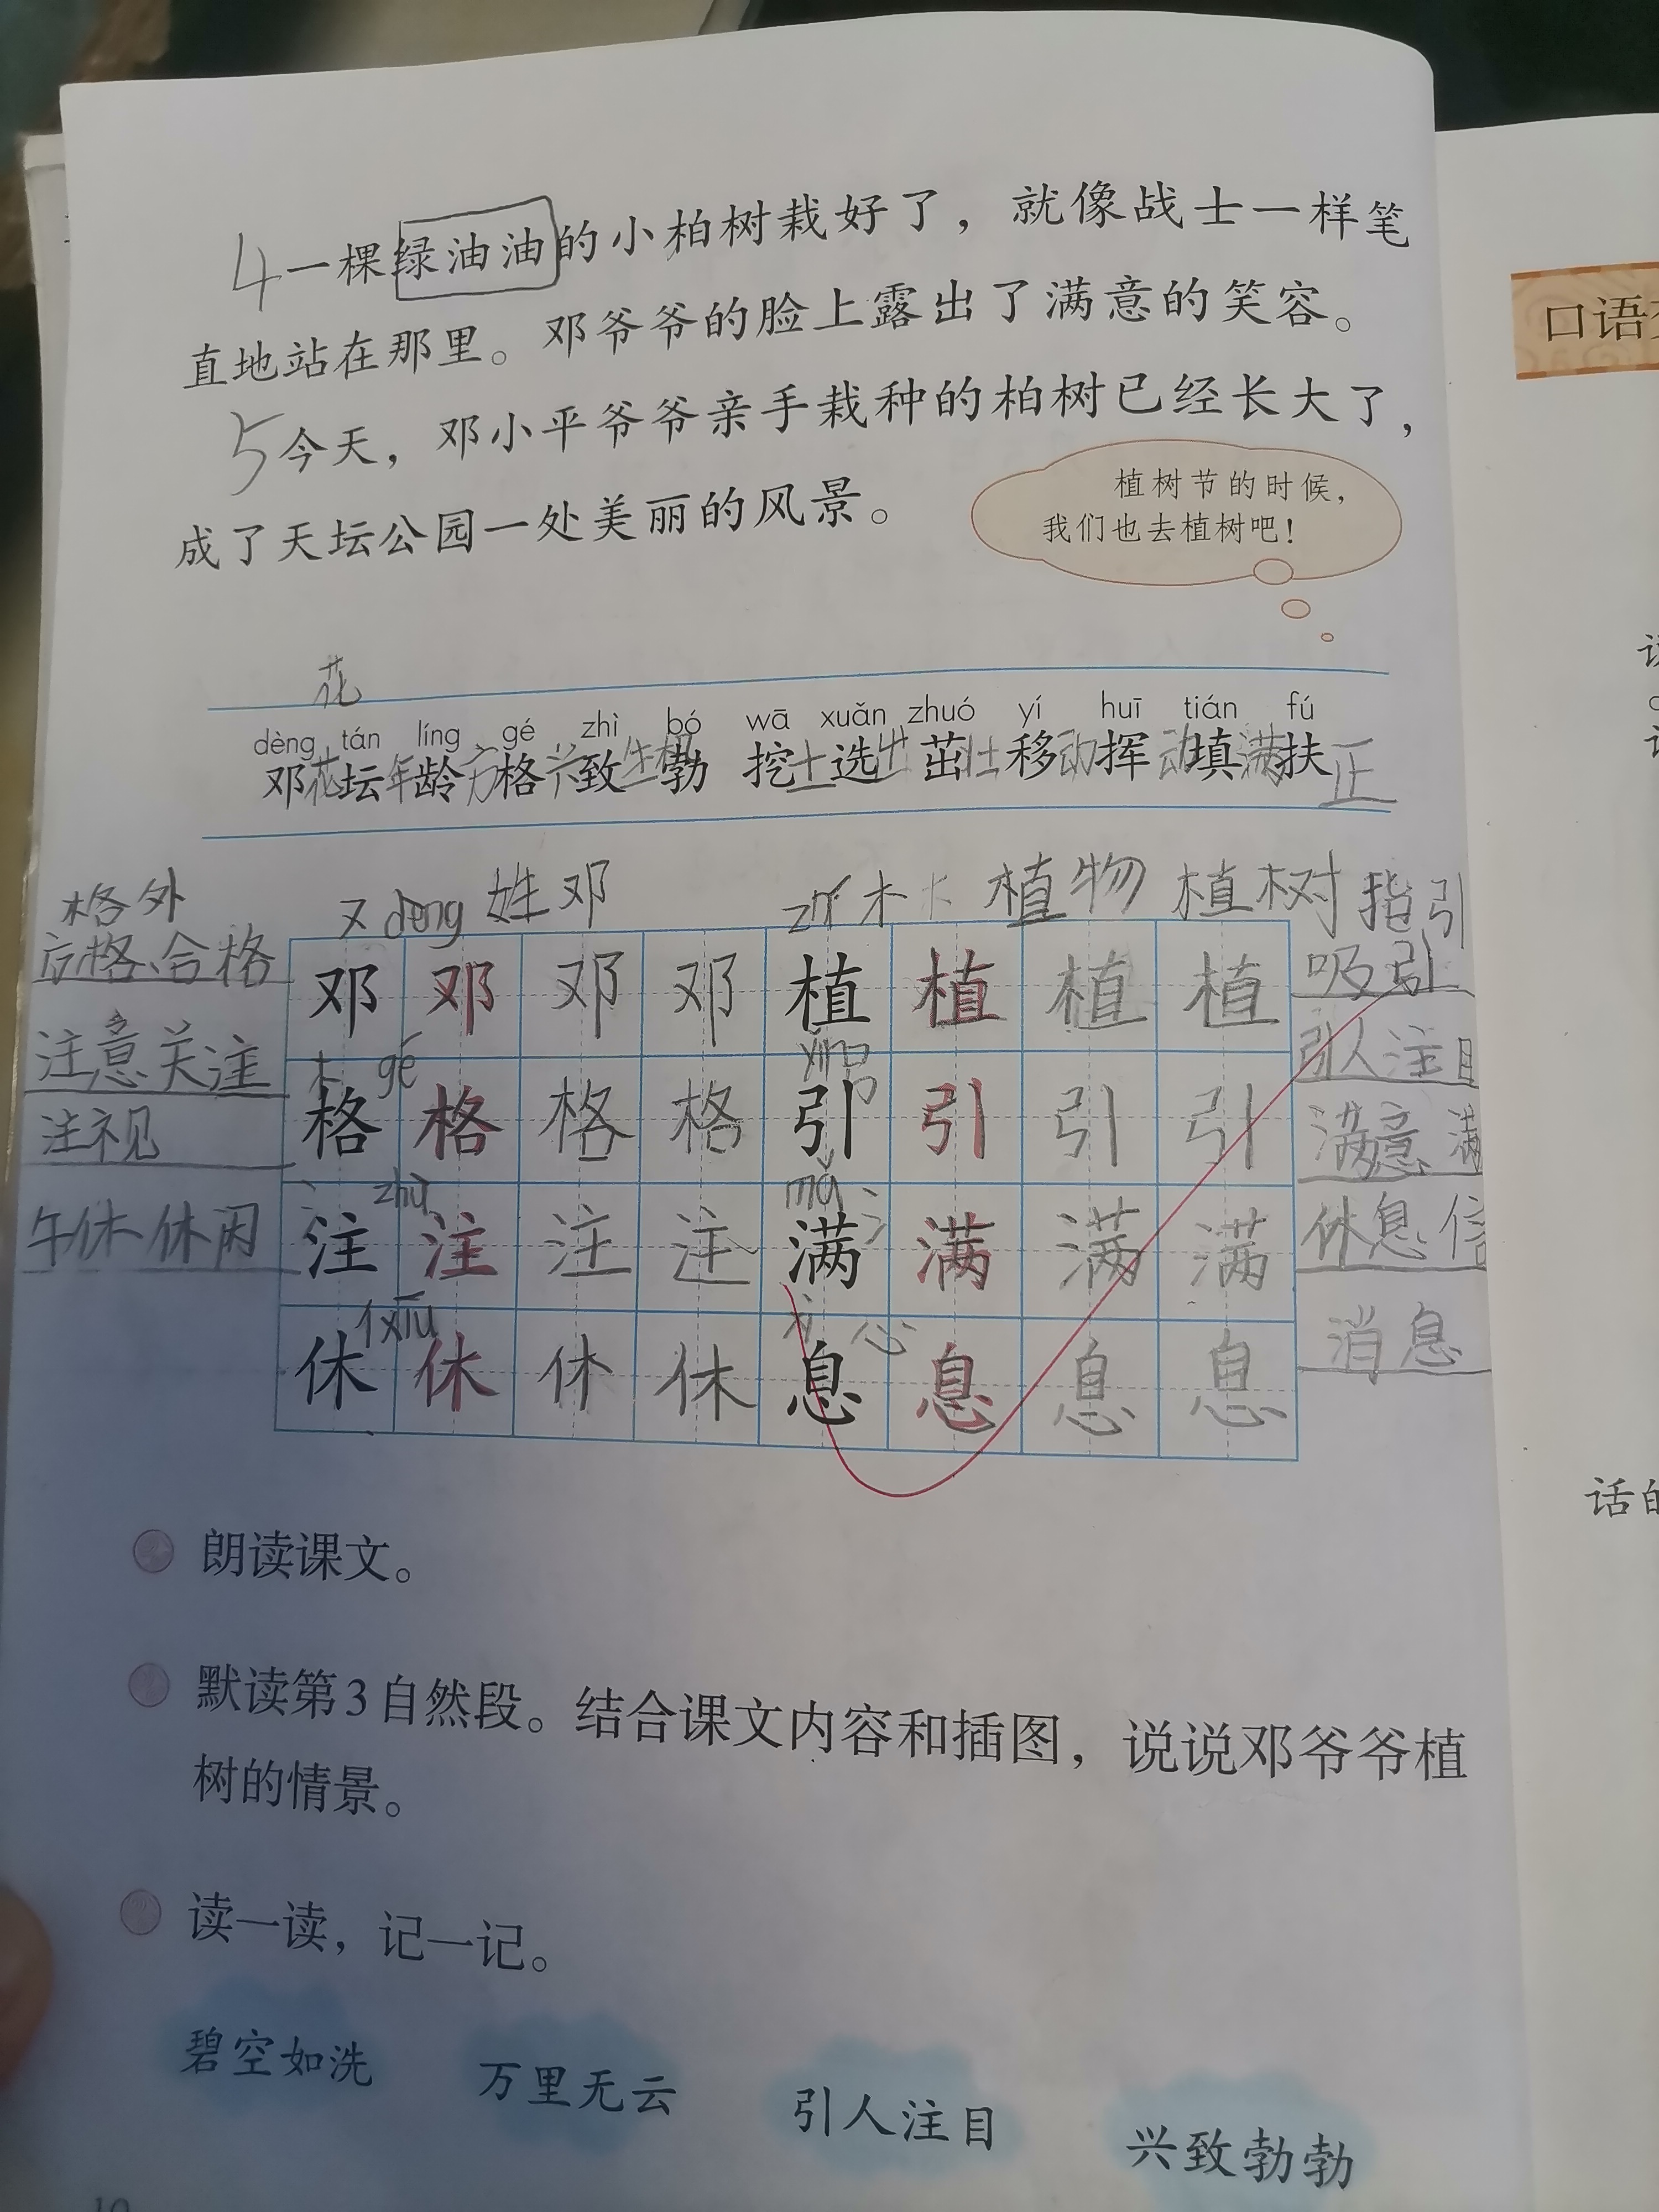 4 一棵绿油油的小柏树栽好了，就像战士一样笔
直地站在那里。邓爷爷的脸上露出了满意的笑容。
5 今天，邓小平爷爷亲手栽种的柏树已经长大了，
成了天坛公园一处美丽的风景。
植树节的时候，
我们也去植树吧！
口语
花
dèng tán líng gé zhì bó wā xuǎn zhuó yí huī tián fú
邓 花 坛 年 龄 方 格 兴 致 生 勃 挖 土 选 出 茁 壮 移 动 挥 动 填 满 扶 正
格外
格、合格
注意关注
注视
午休 休闲
又 dèng 姓邓 木 植物 植树 指引
吸引
引人注目
满意 满
休息 信
消息
邓 邓 邓 邓 植 植 植 植
木 gé
格 格 格 格 引 引 引 引
氵 zhù 氵
注 注 注 注 满 满 满 满
亻 xiū 心
休 休 休 休 息 息 息 息
朗读课文。
默读第3自然段。结合课文内容和插图，说说邓爷爷植
树的情景。
读一读，记一记。
碧空如洗 万里无云 引人注目 兴致勃勃
话的